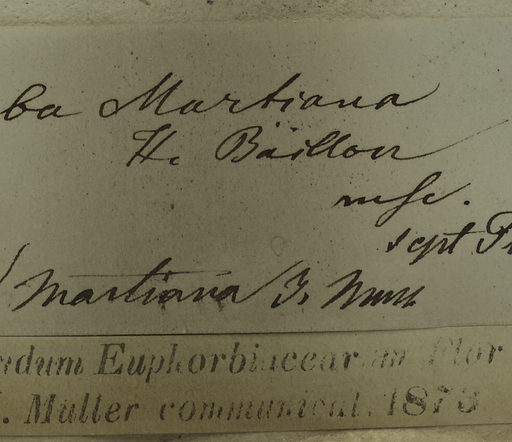 ba Martiana
H. Baillon
msc.
sept
Martiana J. Mull
ndum Euphorbiacearum Flor
. Müller communicat. 1873